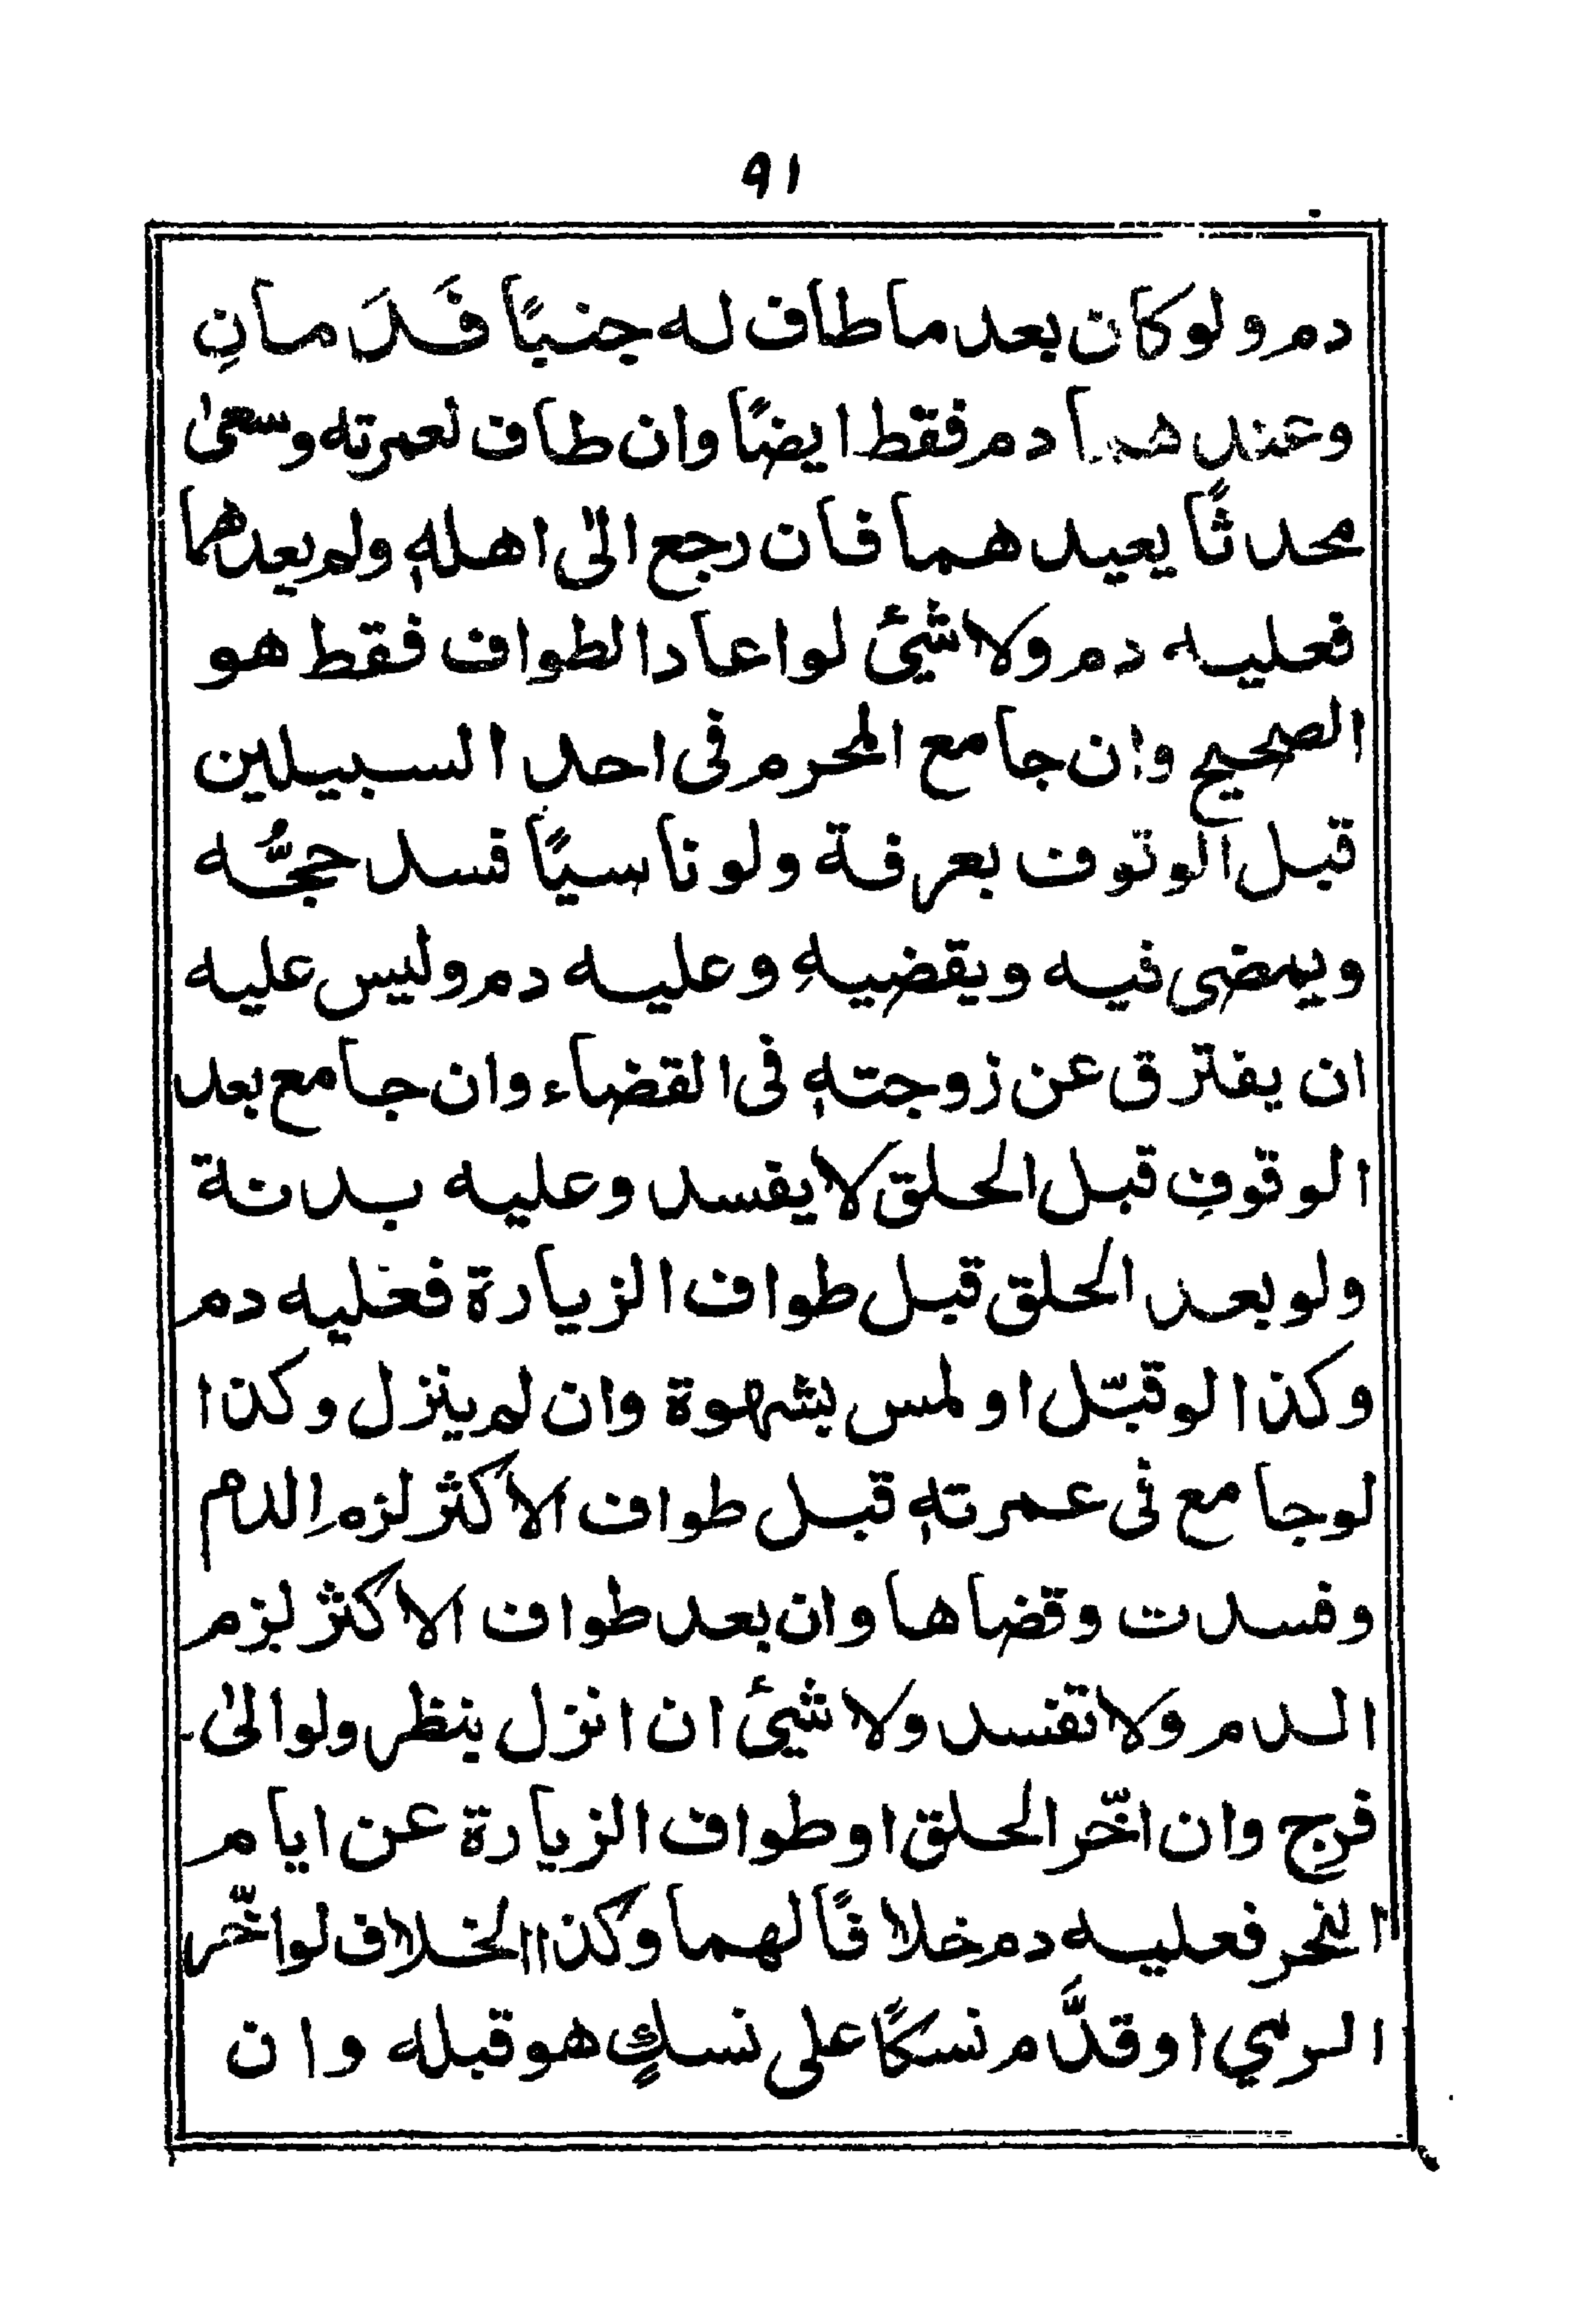 ٩١
دم ولو كان بعد ما طاف له جنبًا فَدَمانِ
وعندهما دم فقط ايضًا وان طاف لعمرته وسعىٰ
محدثًا يعيدهما فان رجع الىٰ اهلهٖ ولم يعدهما
فعليه دم ولا شئ لو اعاد الطواف فقط هو
الصحيح وان جامع المحرم فى احد السبيلين
قبل الوقوف بعرفة ولو ناسيًا فسد حجُّه
ويمضى فيه ويقضيهِ وعليه دم وليس عليه
ان يفترق عن زوجتهٖ فى القضاء وان جامع بعد
الوقوفِ قبل الحلق لا يفسد وعليه بدنة
ولو بعد الحلق قبل طواف الزيارة فعليه دم
وكذا لو قبّل او لمس بشهوة وان لم ينزل وكذا
لو جامع فى عمرتهٖ قبل طواف الاكثر لزمه الدم
وفسدت وقضاها وان بعد طواف الاكثر لزم
الدم ولا تفسد ولا شئ ان انزل بنظر ولو الىٰ
فرج وان اخّر الحلق او طواف الزيارة عن ايام
النحر فعليه دم خلافًا لهما وكذا الخلاف لو اخّر
الرمي او قدَّم نسكًا على نسكٍ هو قبله وان